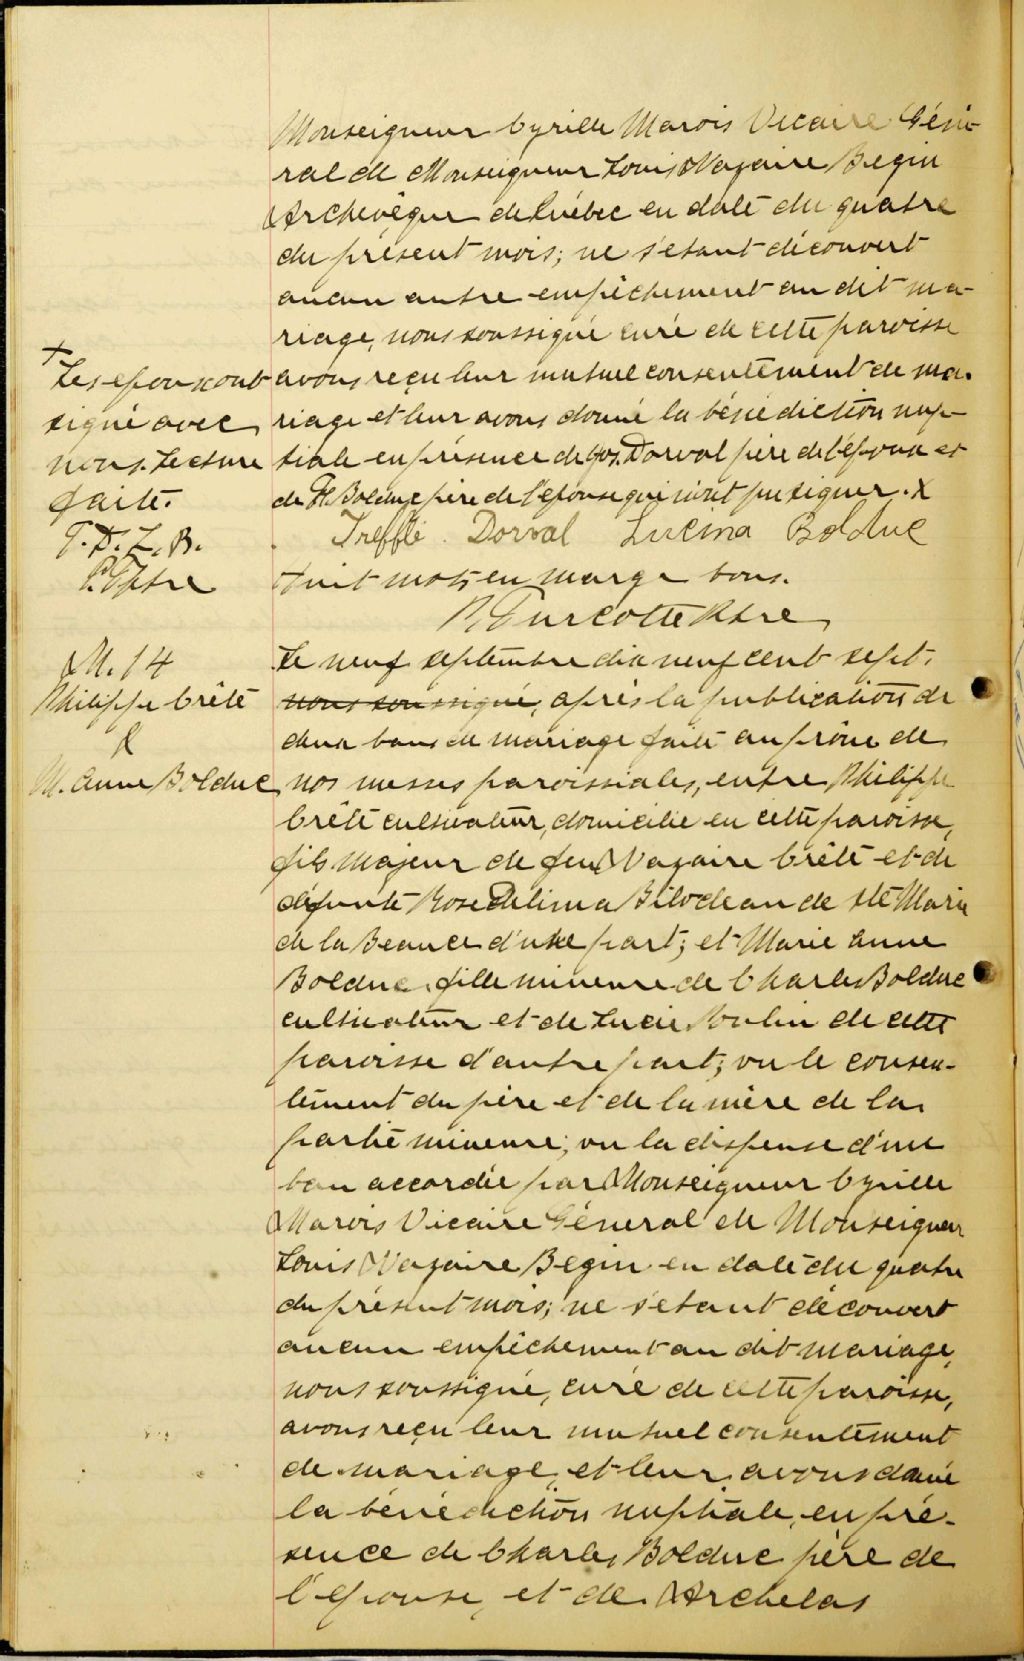 Monseigneur Cyrille Marois Vicaire Géné-
ral de Monseigneur Louis Nazaire Begin
Archevêque de Québec en date du quatre
du présent mois; ne s'etant découvert
aucun autre empêchement au dit ma-
riage, nous soussigné curé de cette paroisse
avons reçu leur mutuel consentement de ma-
riage et leur avons donné la bénédiction nup-
tiale en présence de Jos. Dorval père de l'époux et
de F. Bolduc père de l'epouse qui n'ont pu signer. X
Trefflé Dorval Lucina Bolduc
Huit mots en marge bons.
P. Turcotte Ptre
+
Les epoux ont
signé avec
nous. Lecture
faite.
T. D. L. B.
P. T. ptre
M. 14
Philippe Crêté
&
M. Anne Bolduc
Le neuf septembre dix neuf cent sept,
nous soussigné, après la publication de
deux bans de mariage faite au prône de
nos messes paroissiales, entre Philippe
Crêté cultivateur, domicilié en cette paroisse,
fils majeur de feu Nazaire Crêté et de
défunte Rose Delima Bilodeau de Ste Marie
de la Beauce d'une part; et Marie Anne
Bolduc, fille mineure de Charles Bolduc
cultivateur et de Lucie Poulin de cette
paroisse d'autre part; vu le consen-
tement du père et de la mère de la
partie mineure; vu la dispense d'un
ban accordée par Monseigneur Cyrille
Marois Vicaire Géneral de Monseigneur
Louis Nazaire Begin en date du quatre
du présent mois; ne s'etant découvert
aucun empêchement au dit mariage,
nous soussigné, curé de cette paroisse,
avons reçu leur mutuel consentement
de mariage, et leur avons donné
la bénédiction nuptiale, en pré-
sence de Charles Bolduc père de
l'épouse, et de Archelas